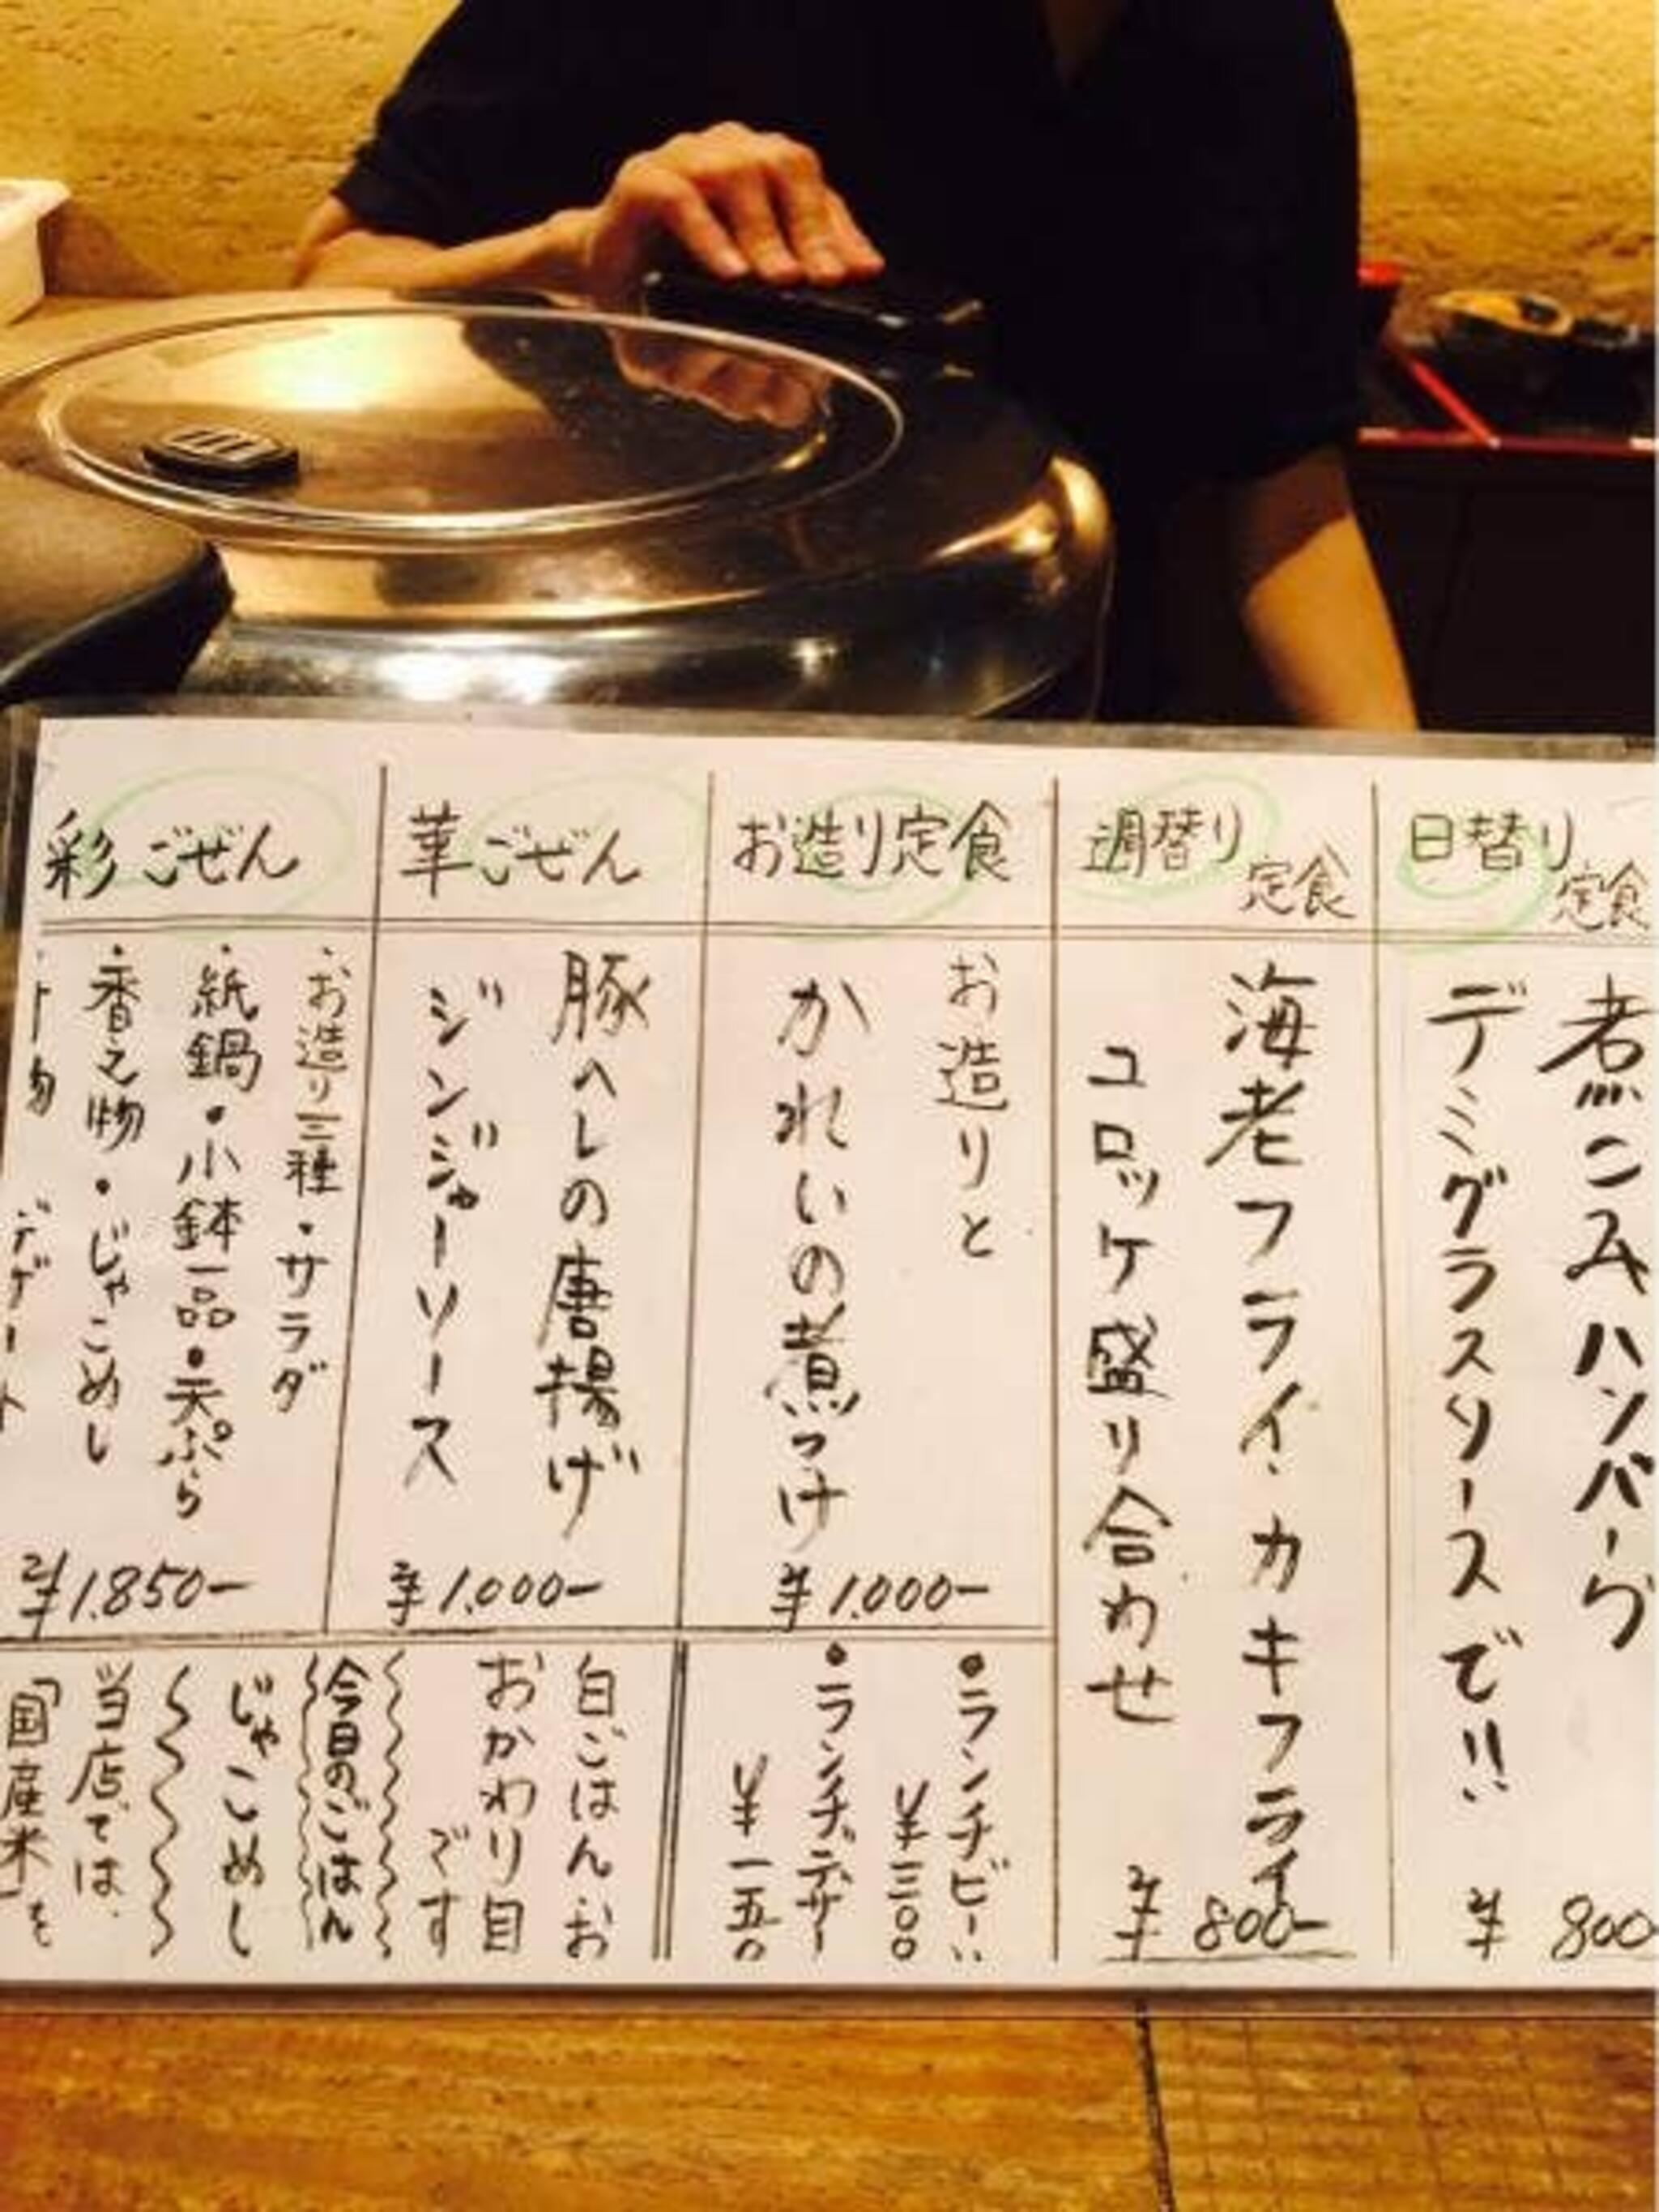 日替り定食
煮こみハンバーグ
デミグラスソースで!!
¥800
週替り定食
海老フライ・カキフライ
コロッケ盛り合わせ
¥800-
お造り定食
お造りと
かれいの煮つけ
¥1,000-
華ごぜん
豚ヘレの唐揚げ
ジンジャーソース
¥1,000-
彩ごぜん
・お造り三種・サラダ
・紙鍋・小鉢一品・天ぷら
・香之物・じゃこめし
デザート
¥1,850-
•ランチビール
¥三〇〇
•ランチデザート
¥一五〇
白ごはんお
おかわり自
です
今日のごはん
じゃこめし
当店では、
「国産米」を